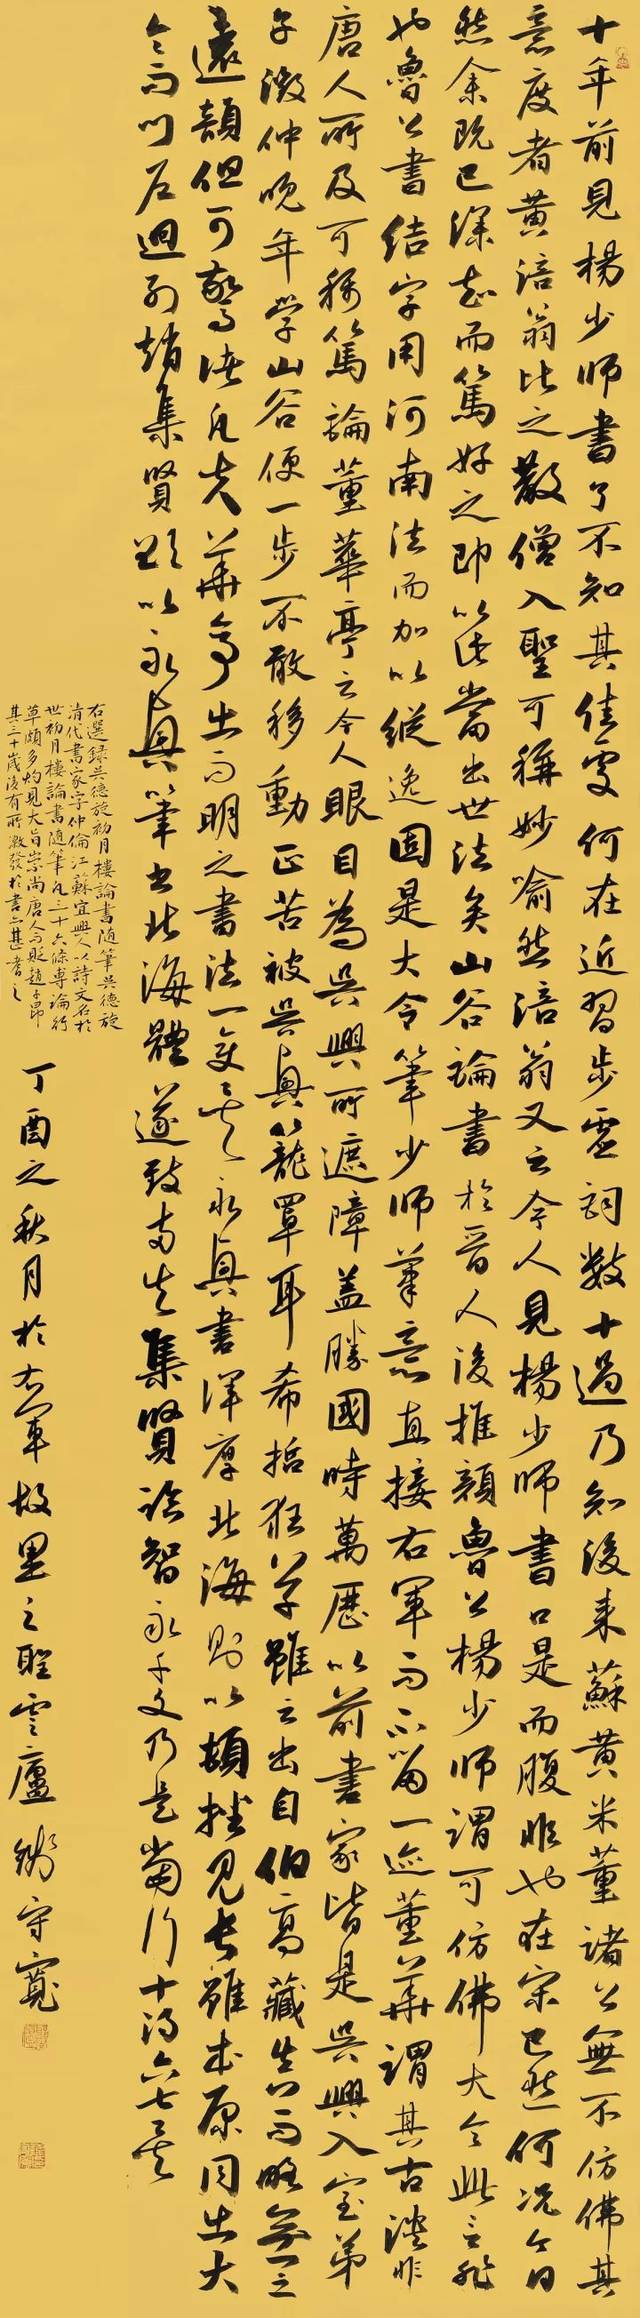 十年前見楊少師書了不知其佳處何在近習步虛詞數十過乃知後來蘇黃米董諸公無不仿佛其
意度者黃涪翁比之散僧入聖可稱妙喻然涪翁又云今人見楊少師書口是而腹非也在宋已然何況今日
然余既已深知而篤好之即以此當出世法矣山谷論書於晉人後推顏魯公楊少師謂可仿佛大令此言非
也魯公書結字用河南法而加以縱逸固是大令筆少師筆意直接右軍而不留一迹董華謂其古淡非
唐人所及可稱篤論董華亭云今人眼目為吳興所遮障蓋勝國時萬曆以前書家皆是吳興入室弟
子徵仲晚年學山谷便一步不敢移動正苦被吳興籠罩耳希哲狂草雖云出自伯高藏真而略無一之
遠韻但可驚諸凡夫華亭出而明之書法一變矣永興書渾厚北海則以頓挫見長雖本原同出大
令而門庭迥別趙集賢欲以永興筆書北海體遂致兩失集賢臨智永千文乃是當行十得六七矣
右選錄吳德旋初月樓論書隨筆吳德旋
清代書家字仲倫江蘇宜興人以詩文名於
世初月樓論書隨筆凡三十六條專論行
草頗多灼見大旨崇尚唐人而貶趙子昂
其三十歲後有所激發於書亦甚者之
丁酉之秋月於右軍故里之聖雲廬 守寬